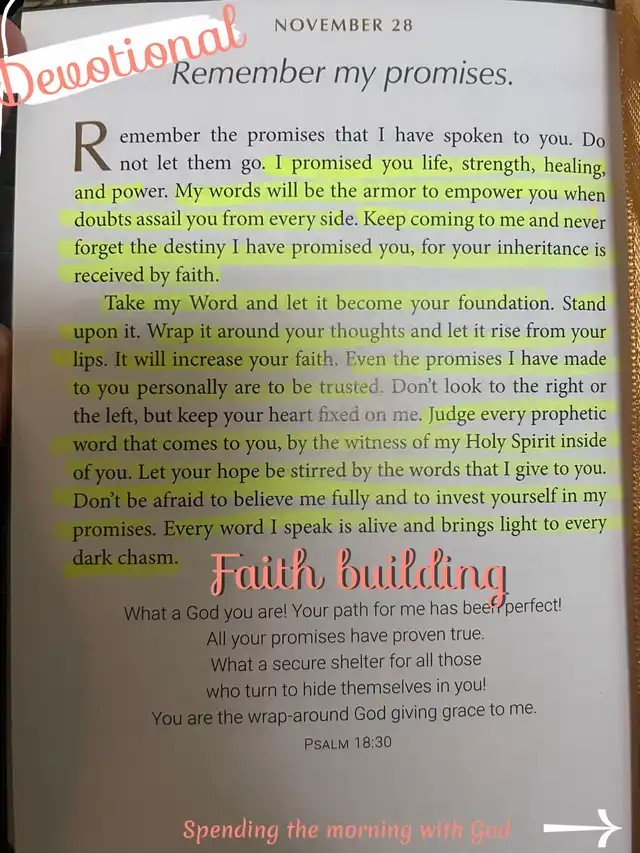 NOVEMBER 28
Devotional
Remember my promises.
Remember the promises that I have spoken to you. Do
not let them go. I promised you life, strength, healing,
and power. My words will be the armor to empower you when
doubts assail you from every side. Keep coming to me and never
forget the destiny I have promised you, for your inheritance is
received by faith.
Take my Word and let it become your foundation. Stand
upon it. Wrap it around your thoughts and let it rise from your
lips. It will increase your faith. Even the promises I have made
to you personally are to be trusted. Don't look to the right or
the left, but keep your heart fixed on me. Judge every prophetic
word that comes to you, by the witness of my Holy Spirit inside
of you. Let your hope be stirred by the words that I give to you.
Don't be afraid to believe me fully and to invest yourself in my
promises. Every word I speak is alive and brings light to every
dark chasm.
Faith building
What a God you are! Your path for me has been perfect!
All your promises have proven true.
What a secure shelter for all those
who turn to hide themselves in you!
You are the wrap-around God giving grace to me.
PSALM 18:30
Spending the morning with God